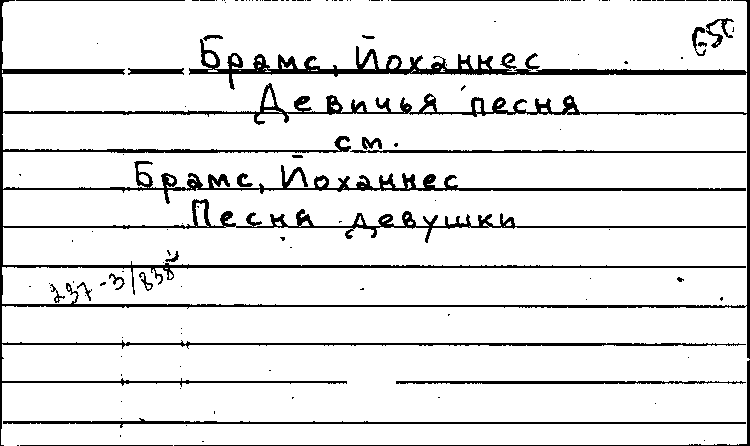 650
Брамс, Йоханнес
Девичья песня
см.
Брамс, Йоханнес
Песня девушки
237-3/838